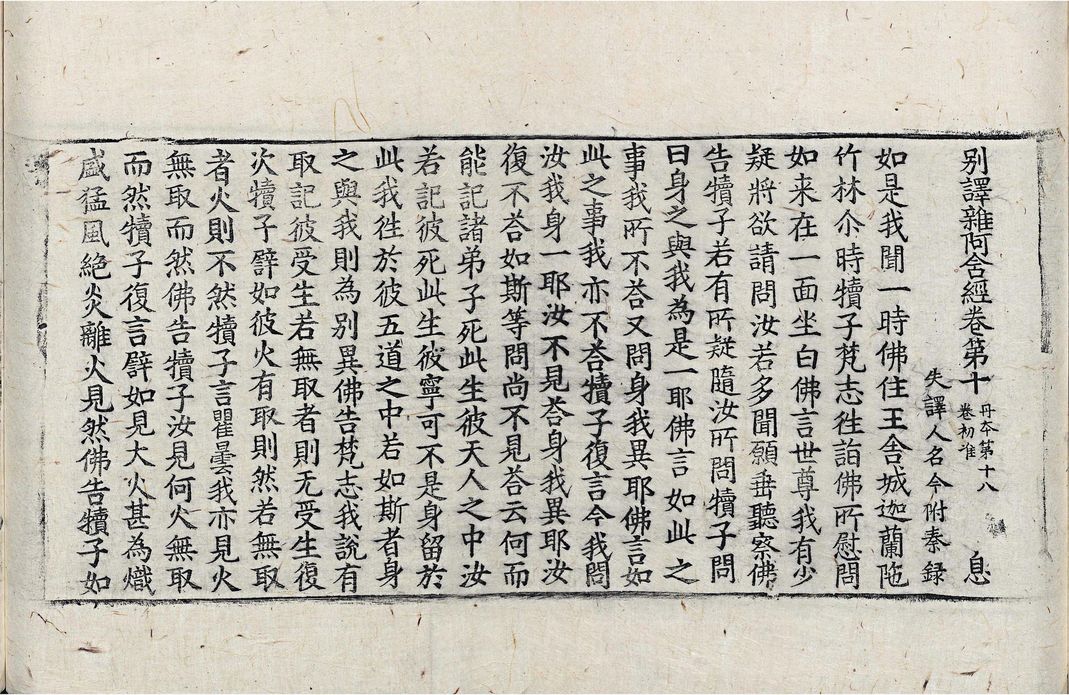 別譯雜阿含經卷第十 丹本第十八卷初准 息
失譯人名今附秦録
如是我聞一時佛住王舍城迦蘭陁
竹林尒時犢子梵志徃詣佛所慰問
如来在一面坐白佛言世尊我有少
疑將欲請問汝若多聞願垂聽察佛
告犢子若有所疑隨汝所問犢子問
曰身之與我為是一耶佛言如此之
事我所不荅又問身我異耶佛言如
此之事我亦不荅犢子復言今我問
汝我身一耶汝不見荅身我異耶汝
復不荅如斯等問尚不見荅云何而
能記諸弟子死此生彼天人之中汝
若記彼死此生彼寧可不是身留於
此我徃於彼五道之中若如斯者身
之與我則為別異佛告梵志我說有
取記彼受生若無取者則无受生復
次犢子譬如彼火有取則然若無取
者火則不然犢子言瞿曇我亦見火
無取而然佛告犢子汝見何火無取
而然犢子復言譬如見大火甚為熾
盛猛風絕炎離火見然佛告犢子如